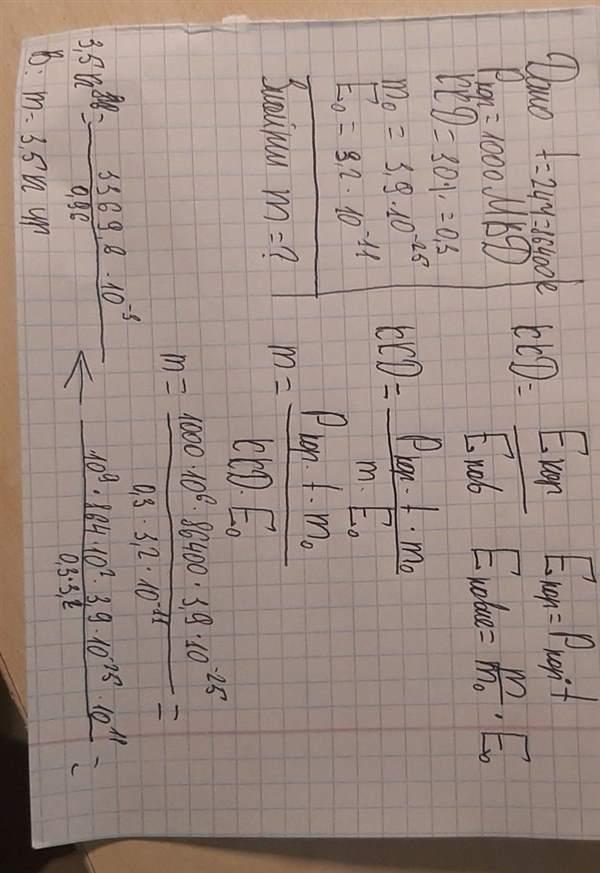 Дано t=24ч=86400с
Pкор=1000МВт
ККД=30%=0,3
m₀=3,9·10⁻²⁵
E₀=3,2·10⁻¹¹
Знайти m=?
ККД=Eкор/Eпов Eкор=Pкор·t
Eповне=m/m₀·E₀
ККД=Pкор·t·m₀/m·E₀
m=Pкор·t·m₀/ККД·E₀
m=1000·10⁶·86400·3,9·10⁻²⁵/0,3·3,2·10⁻¹¹=
10⁹·864·10²·3,9·10⁻²⁵·10¹¹/0,3·3,2=
3,5кг=3369,8·10⁻³/0,96
В: m=3,5кг